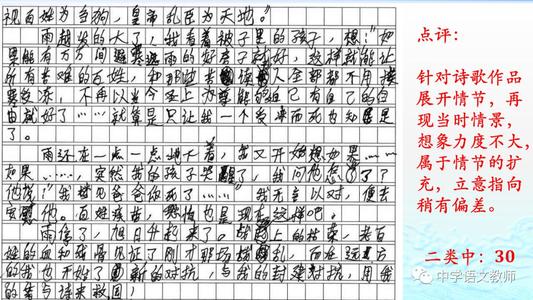 视百姓为刍狗，皇帝乱臣为天地。
雨越来的大了，我看着被子里的孩子，想："如
果能有万万间遮寒遮雨的好房子就好，这样就能让
所有苦难的百姓，和那些贫人全部都不用
寒受冻，不再以当今圣上为尊能的组已有自己的自
由就好了……就算是只让我一个受冻而死为知足是
了。
雨还在一点一点地下着，我又开始想如果……
如果……，突然我的孩子哭醒了，我问他怎了？
他说"我梦见爸爸你死了……"我无言以对，便去
安慰他。百姓疾苦，恐怕也是现在这样吧。
雨停了，旭日升起来了。
的我也开始了新的对抗，与我的封建对抗，用我
的笔与诗来救国！
点评：
针对诗歌作品
展开情节，再
现当时情景，
想象力度不大，
属于情节的扩
充，立意指向
稍有偏差。
二类中：30
中学语文教师